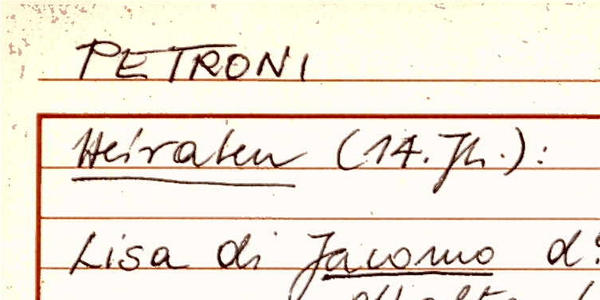 PETRONI
Heiraten (14. Jh.):
Lisa di Jacomo d.